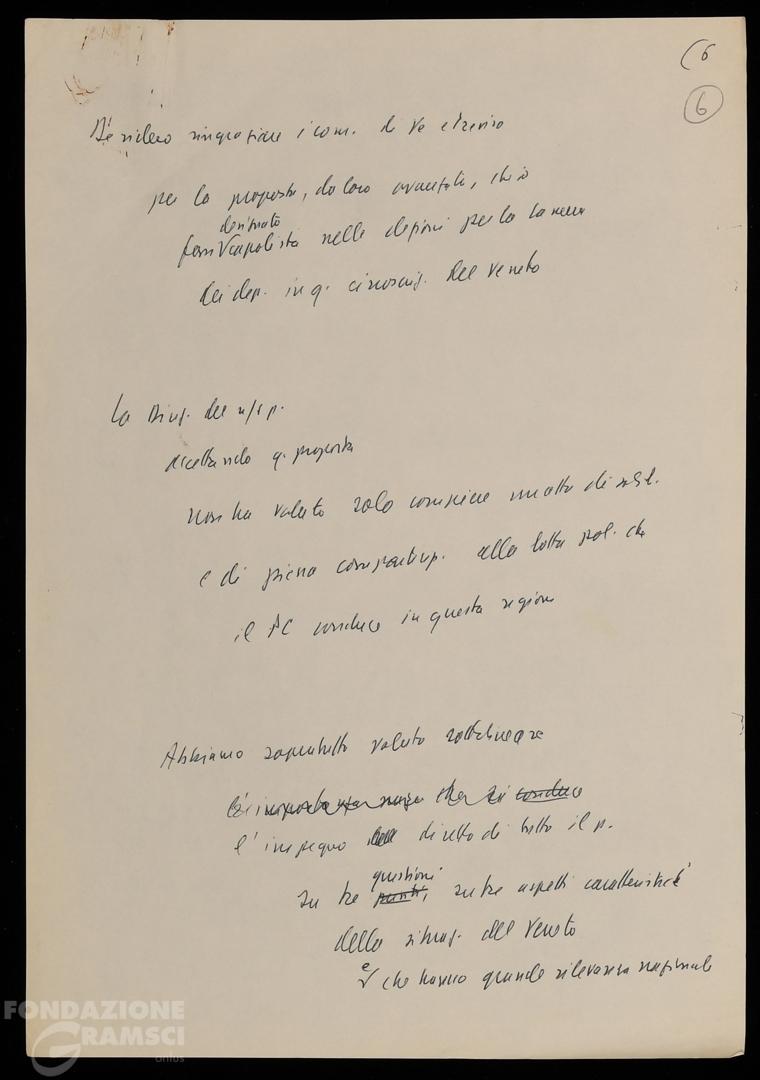 (6
6
Desidero ringraziare i com. di Ve e Treviso
per la proposta, da loro avanzata, che io
destinato
fossi V capolista nelle elezioni per la Camera
dei dep. in q. circoscriz. del Veneto
La Direz. del n/s p.
accettando q. proposta
non ha voluto solo compiere un atto di
e di piena compartecip. alla lotta pol. che
il PC conduce in questa regione
Abbiamo soprattutto voluto sottolineare
che si conduce
l'impegno diretto di tutto il p.
questioni
su tre punti, su tre aspetti caratteristici
della situaz. del Veneto
e
V che hanno grande rilevanza nazionale
FONDAZIONE
GRAMSCI
onlus